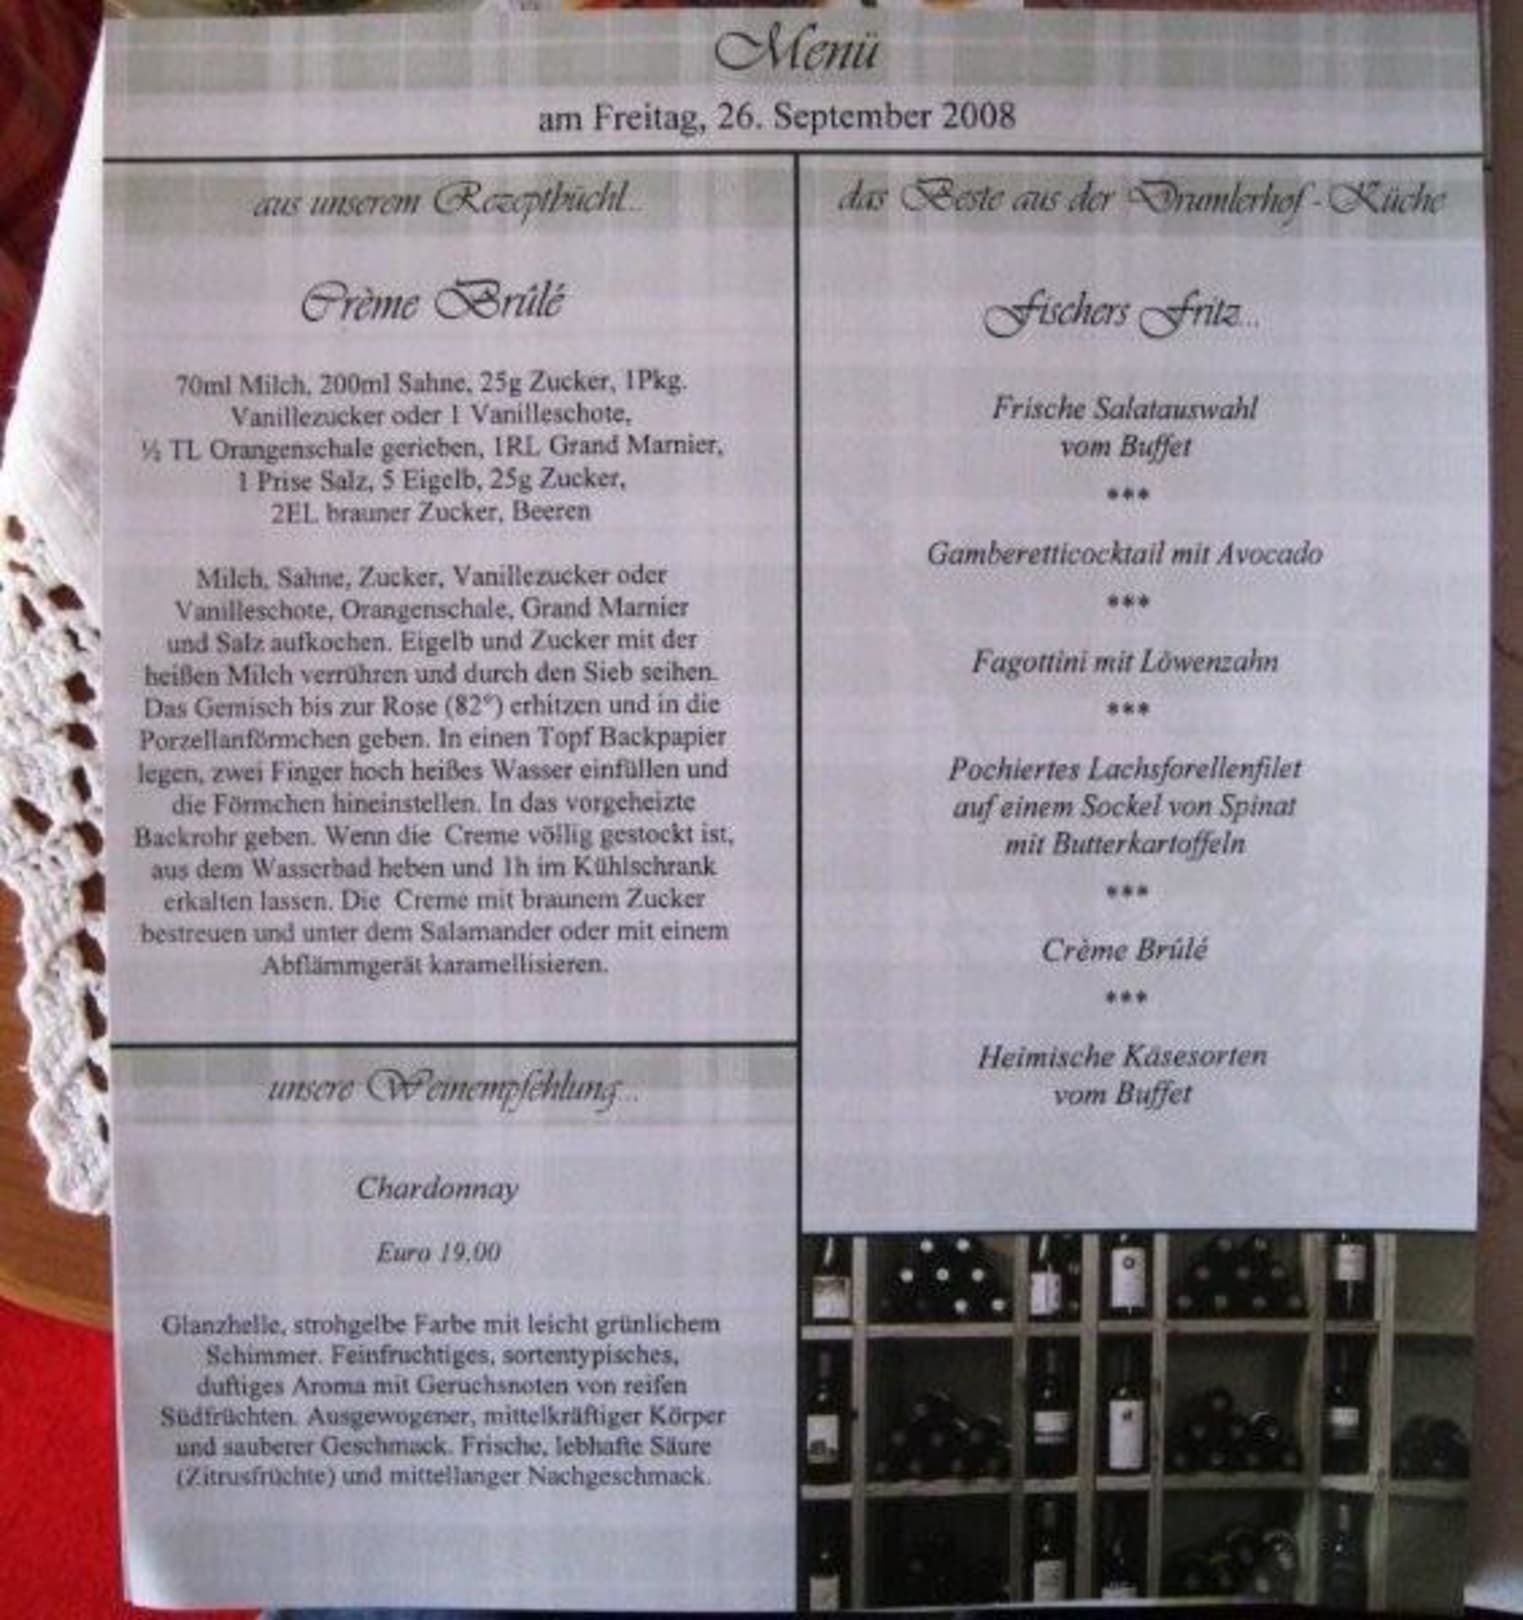 Menü
am Freitag, 26. September 2008
aus unserem Rezeptbüchl...
Crème Brûlé
70ml Milch, 200ml Sahne, 25g Zucker, 1Pkg.
Vanillezucker oder 1 Vanilleschote,
½ TL Orangenschale gerieben, 1RL Grand Marnier,
1 Prise Salz, 5 Eigelb, 25g Zucker,
2EL brauner Zucker, Beeren
Milch, Sahne, Zucker, Vanillezucker oder
Vanilleschote, Orangenschale, Grand Marnier
und Salz aufkochen. Eigelb und Zucker mit der
heißen Milch verrühren und durch den Sieb seihen.
Das Gemisch bis zur Rose (82°) erhitzen und in die
Porzellanförmchen geben. In einen Topf Backpapier
legen, zwei Finger hoch heißes Wasser einfüllen und
die Förmchen hineinstellen. In das vorgeheizte
Backrohr geben. Wenn die Creme völlig gestockt ist,
aus dem Wasserbad heben und 1h im Kühlschrank
erkalten lassen. Die Creme mit braunem Zucker
bestreuen und unter dem Salamander oder mit einem
Abflämmgerät karamellisieren.
unsere Weinempfehlung...
Chardonnay
Euro 19.00
Glanzhelle, strohgelbe Farbe mit leicht grünlichem
Schimmer. Feinfruchtiges, sortentypisches,
duftiges Aroma mit Geruchsnoten von reifen
Südfrüchten. Ausgewogener, mittelkräftiger Körper
und sauberer Geschmack. Frische, lebhafte Säure
(Zitrusfrüchte) und mittellanger Nachgeschmack.
das Beste aus der Drumlerhof - Küche
Fischers Fritz...
Frische Salatauswahl
vom Buffet
***
Gamberetticocktail mit Avocado
***
Fagottini mit Löwenzahn
***
Pochiertes Lachsforellenfilet
auf einem Sockel von Spinat
mit Butterkartoffeln
***
Crème Brûlé
***
Heimische Käsesorten
vom Buffet